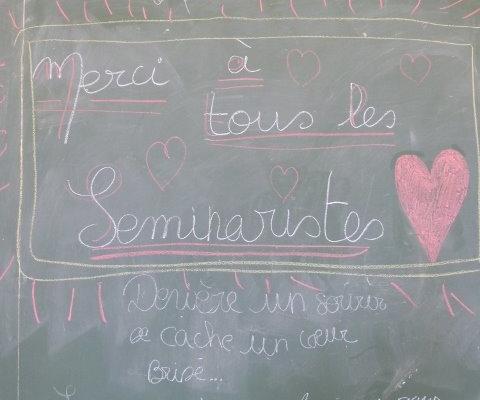 Merci à
tous les
Seminaristes
Derière un sourir
se cache un cœur
Brisé...